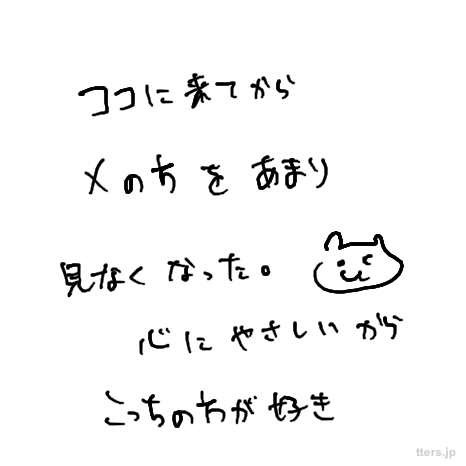 ココに来てから
メの方をあまり
見なくなった。
心にやさしいから
こっちの方が好き
tters.jp